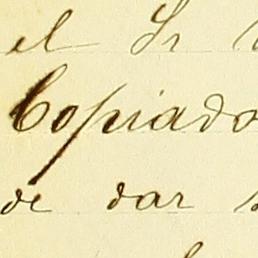 el Sr
Copiado
de dar